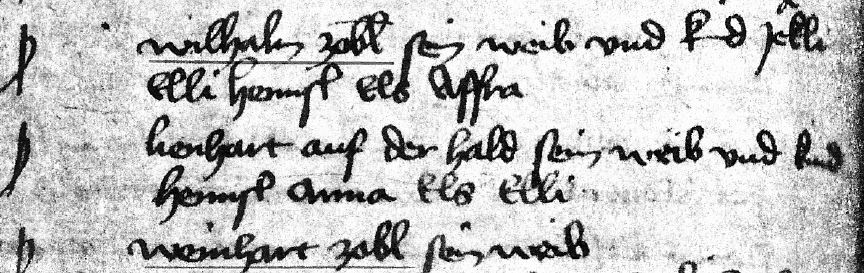 wilhalm zobl sein weib vnd kind Jelli
Elli hennsl Els Affra
lienhart auf der hald sein weib vnd kind
hennsl Anna Els Elli
weinhart zobl sein weib